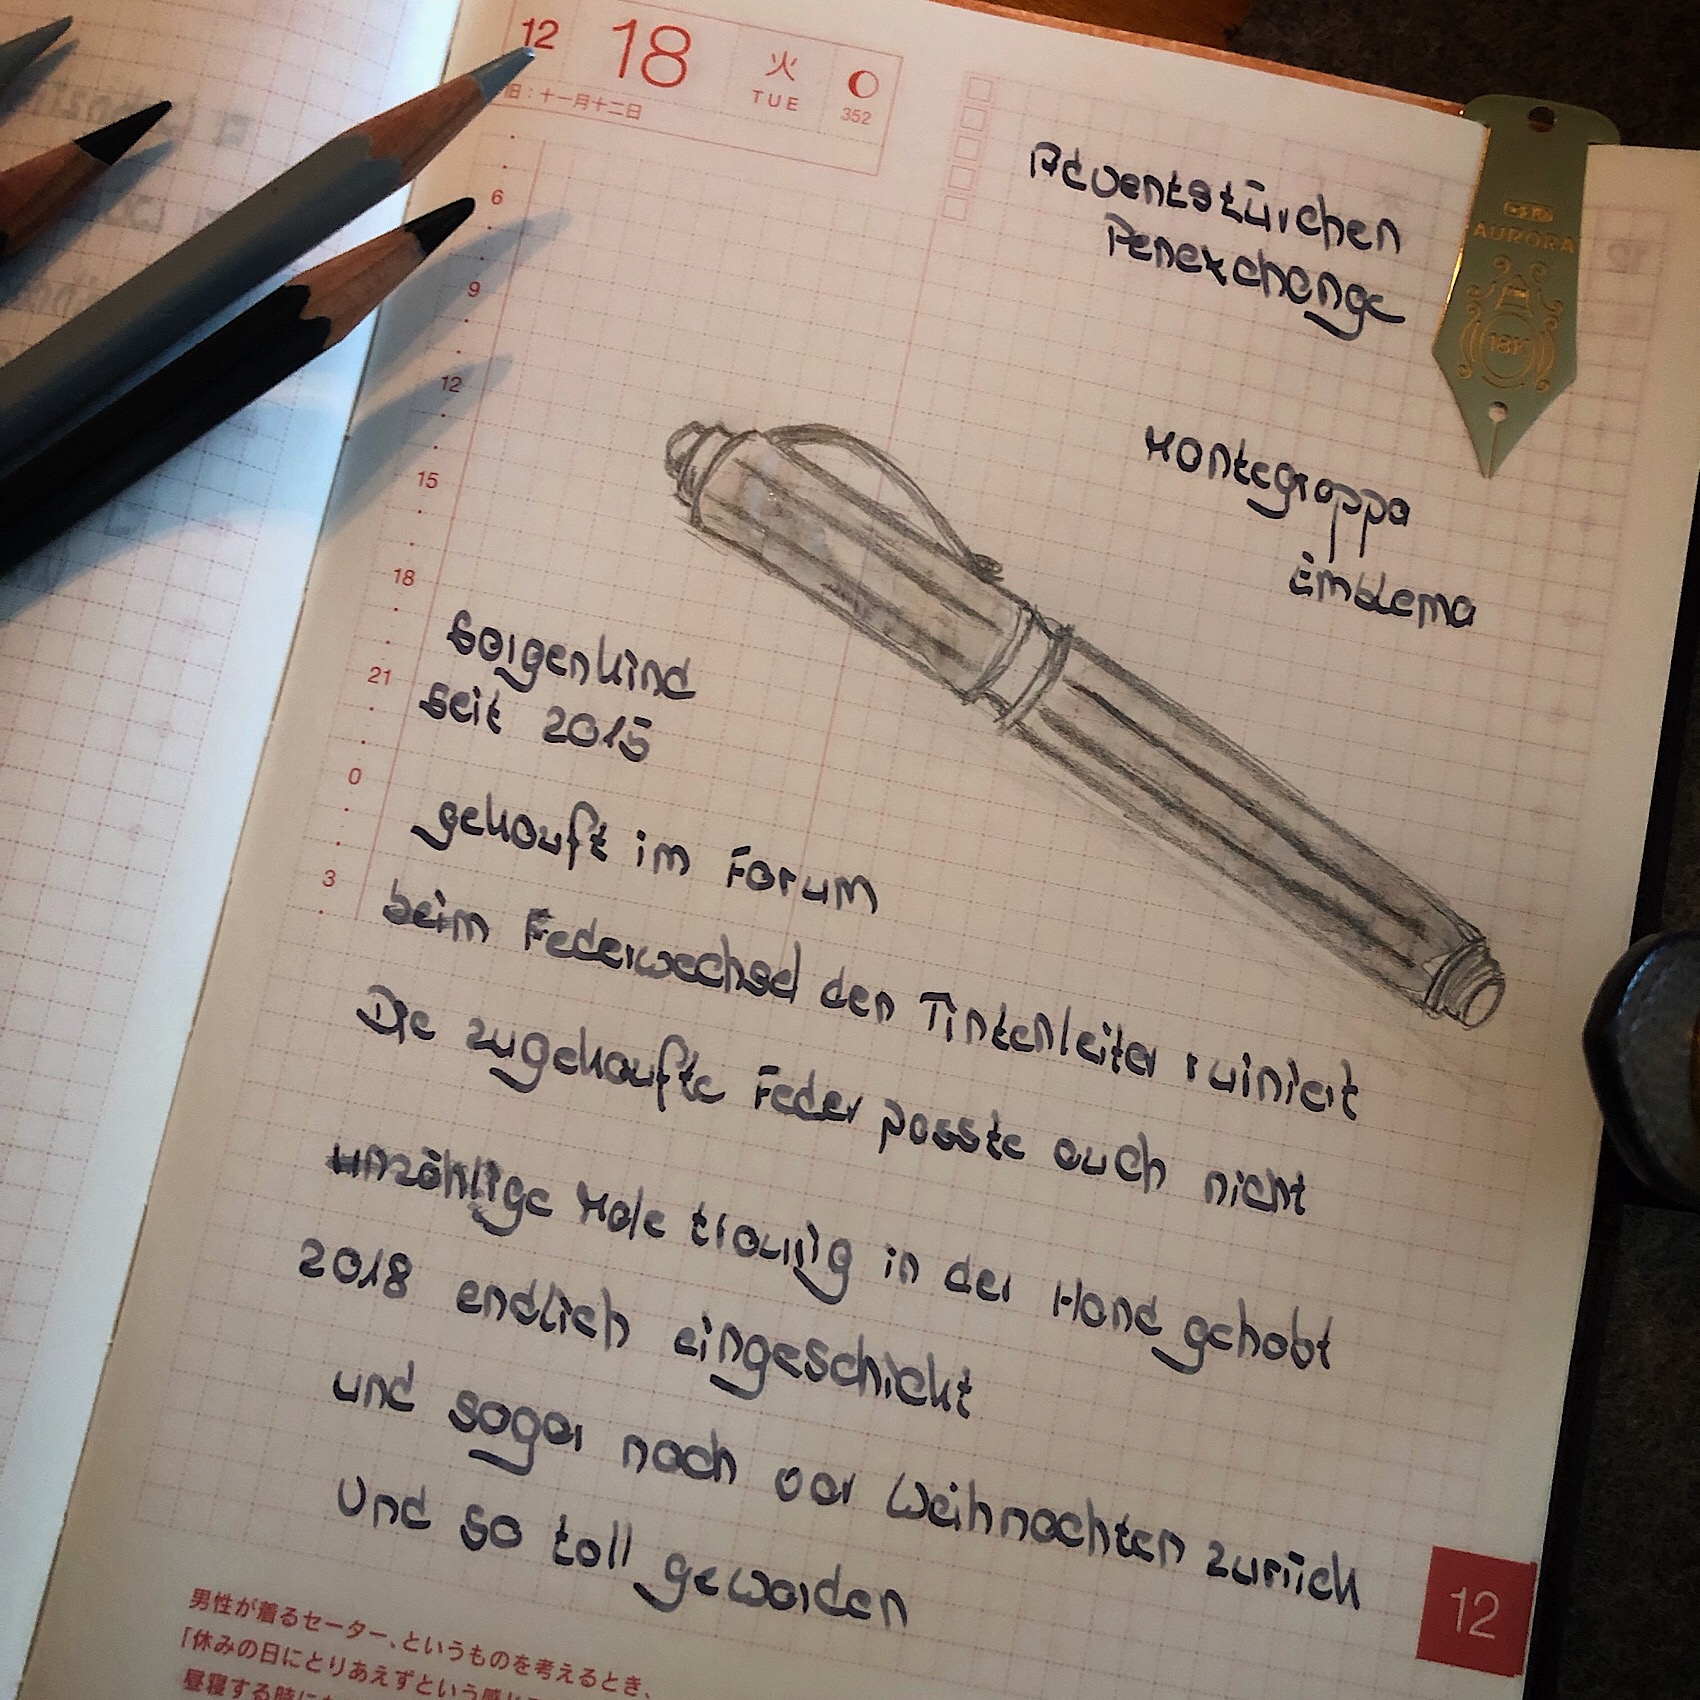 12 18 火 TUE 352
旧:十一月十二日
Adventstürchen
Penexchange
AURORA
18K
Montegrappa
Emblema
6
9
12
15
18
21
0
3
Sorgenkind
seit 2015
gekauft im Forum
beim Federwechsel den Tintenleiter ruiniert
Die zugekaufte Feder passte auch nicht
unzählige Male traurig in der Hand gehabt
2018 endlich eingeschickt
und sogar noch vor Weihnachten zurück
Und so toll geworden
12
男性が着るセーター、というものを考えるとき、
「休みの日にとりあえずという感じ
昼寝する時に